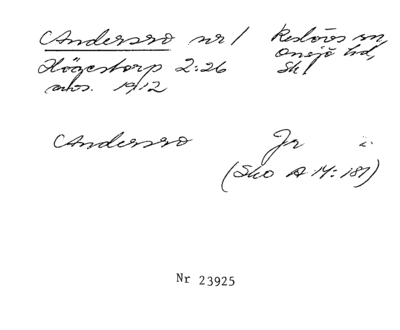 Andersro nr 1 Reslövs sn,
Onsjö hd,
Högestorp 2:26 Sk
avs. 1912
Andersro Jr i.
(Sko A 14:181)
Nr 23925